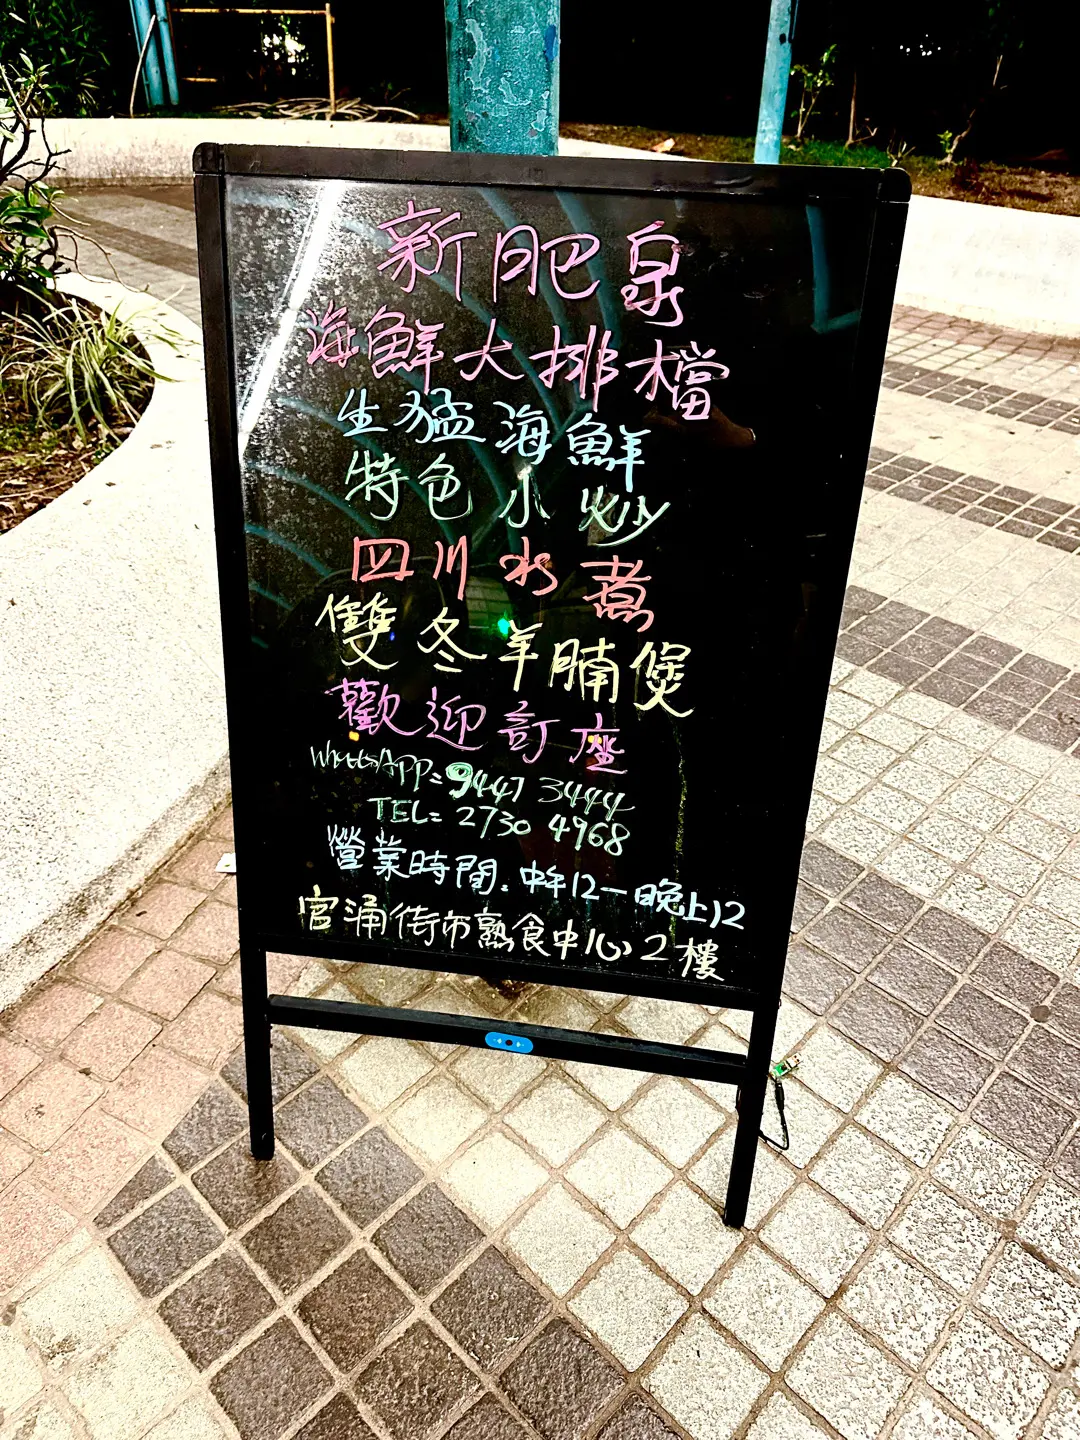 新肥泉
海鮮大排檔
生猛海鮮
特色小炒
四川水煮
雙冬羊腩煲
歡迎訂座
WhatsAPP= 9447 3444
TEL= 2730 4968
營業時間. 中午12一晚上12
官涌街市熟食中心2樓